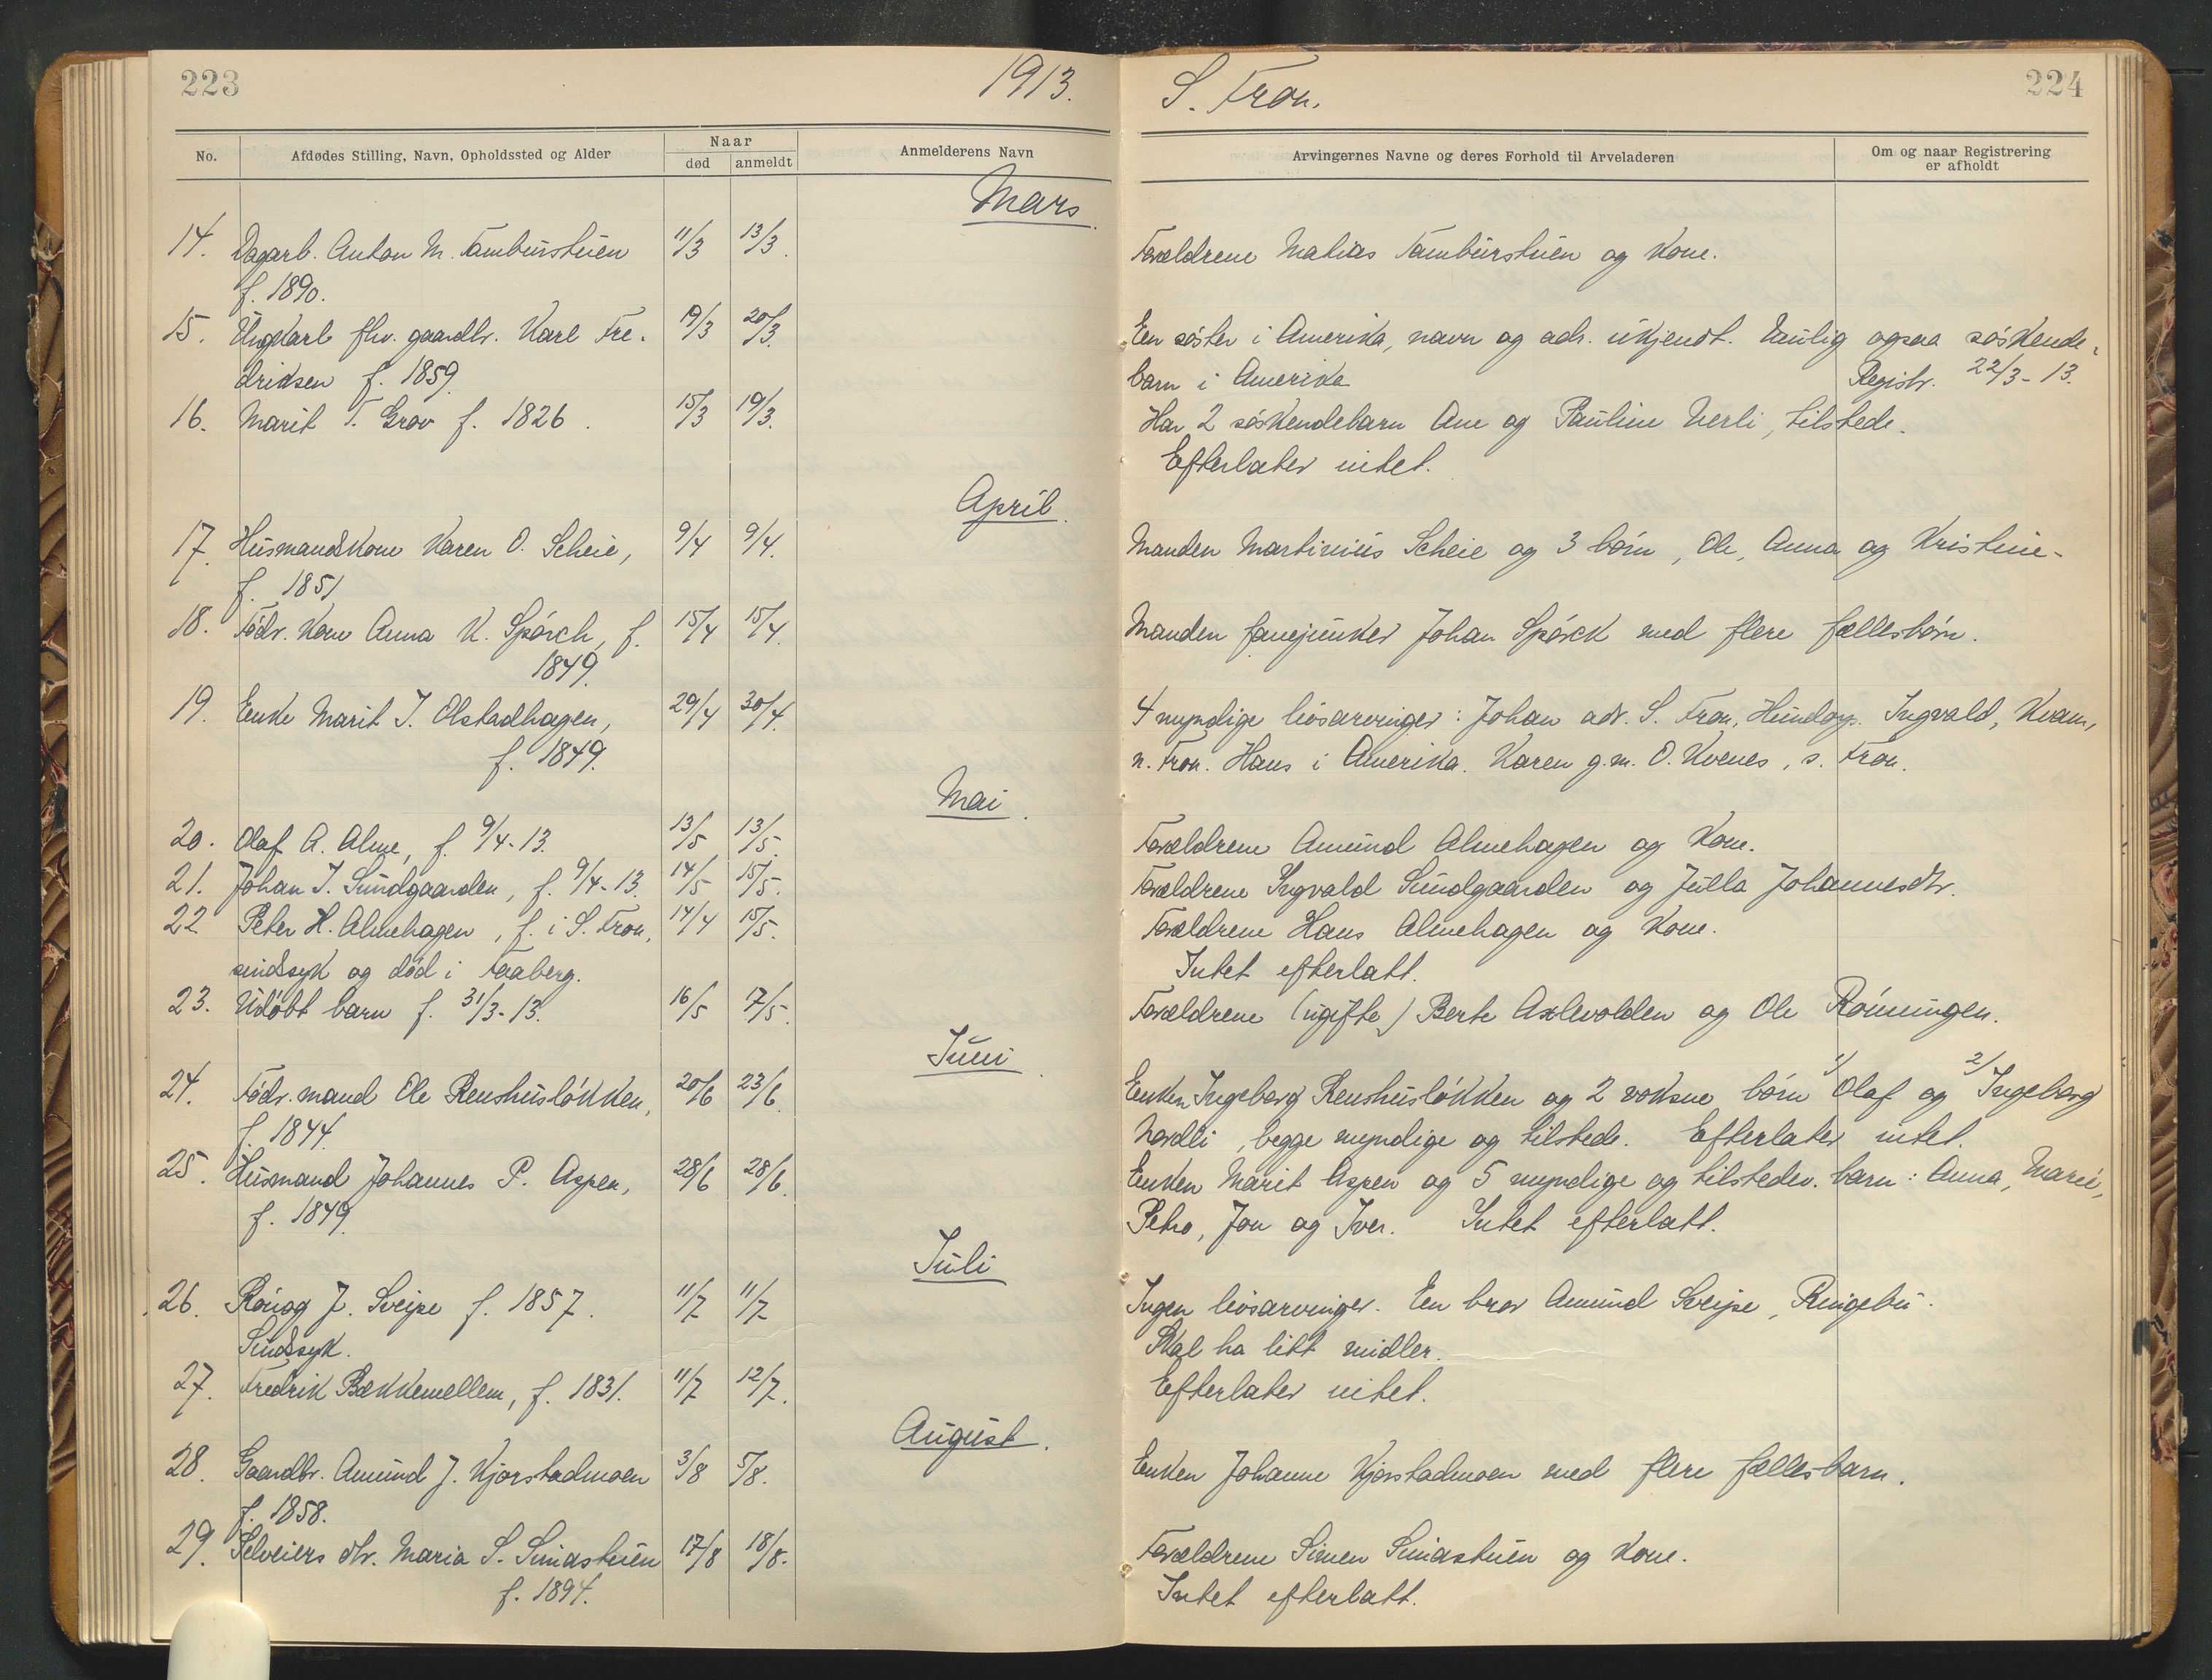 223
1913.
No.
Afdødes Stilling, Navn, Opholdssted og Alder
Naar
død
anmeldt
Anmelderens Navn
Mars
14. Dagarb. Anton M. Tamburstuen 11/3 13/3.
f. 1890.
15. Ungkarl fhv. gaardbr. Karl Fre- 19/3 20/3.
driksen f. 1859.
16. Marit T. Grov f. 1826. 15/3 19/3.
April.
17. Husmandskone Karen O. Scheie, 9/4 9/4.
f. 1851
18. Födr. kone Anna K. Spörch, f. 15/4 15/4.
1849.
19. Enke Marit J. Olstadhagen, 29/4 30/4.
f. 1849.
Mai.
20. Olaf A. Alme, f. 9/4-13. 13/5 13/5.
21. Johan I. Sundgaarden, f. 9/4-13. 14/5 15/5.
22 Peter H. Almehagen, f. i S. Fron, 14/4 15/5.
sindssyk og död i Faaberg.
23. Udöbt barn f. 31/3-13. 16/5 17/5.
Juni.
24. Födr. mand Ole Renshuslökken, 20/6 23/6.
f. 1844.
25. Husmand Johannes P. Aspen, 28/6 28/6.
f. 1849.
Juli
26. Rönog J. Sveipe f. 1857. 11/7 11/7
Sindssyk.
27. Fredrik Bækkemellem, f. 1831. 11/7 12/7.
August.
28. Gaardbr. Amund J. Kjorstadmoen 3/8 5/8.
f. 1858.
29. Selveiers dtr. Maria S. 17/8 18/8.
f. 1894.
S. Fron.
224
Arvingernes Navne og deres Forhold til Arveladeren
Om og naar Registrering
er afholdt
Forældrene Matias Tamburstuen og kone.
Een söster i Amerika, navn og adr. ukjendt. Emlig ogsaa söskende-
barn i Amerika Registr. 22/3-13.
Har 2 söskendebarn Ane og Pauline Verli, tilstede.
Efterlater intet.
Manden Martinius Scheie og 3 börn, Ole, Anna og Kristine-
Manden fanejunker Johan Spörck med flere fællesbörn.
4 myndige livsarvinger: Johan adr. S. Fron, Hundorp. Ingvald, Kvam,
n. Fron. Hans i Amerika. Karen g.m. O. Kvenes, s. Fron.
Forældrene Amund Almehagen og kone.
Forældrene Ingvald Sundgaarden og Julla Johannesdtr.
Forældrene Hans Almehagen og kone.
Intet efterlatt.
Forældrene (ugifte) Berte Axlevolden og Ole Rönningen.
Enken Ingeborg Renshuslökken og 2 voksne börn 1/ Olaf og 2/ Ingeborg
Nordli, begge myndige og tilstede. Efterlater intet.
Enken Marit Aspen og 5 myndige og tilstedev. barn: Anna, Marie,
Petra, Jon og Iver. Intet efterlatt.
Ingen livsarvinger. Een bror Amund Sveipe, Ringebu.
Skal ha litt midler.
Efterlater intet.
Enken Johanne Kjorstadmoen med flere fælles-barn.
Forældrene Simen og kone.
Intet efterlatt.